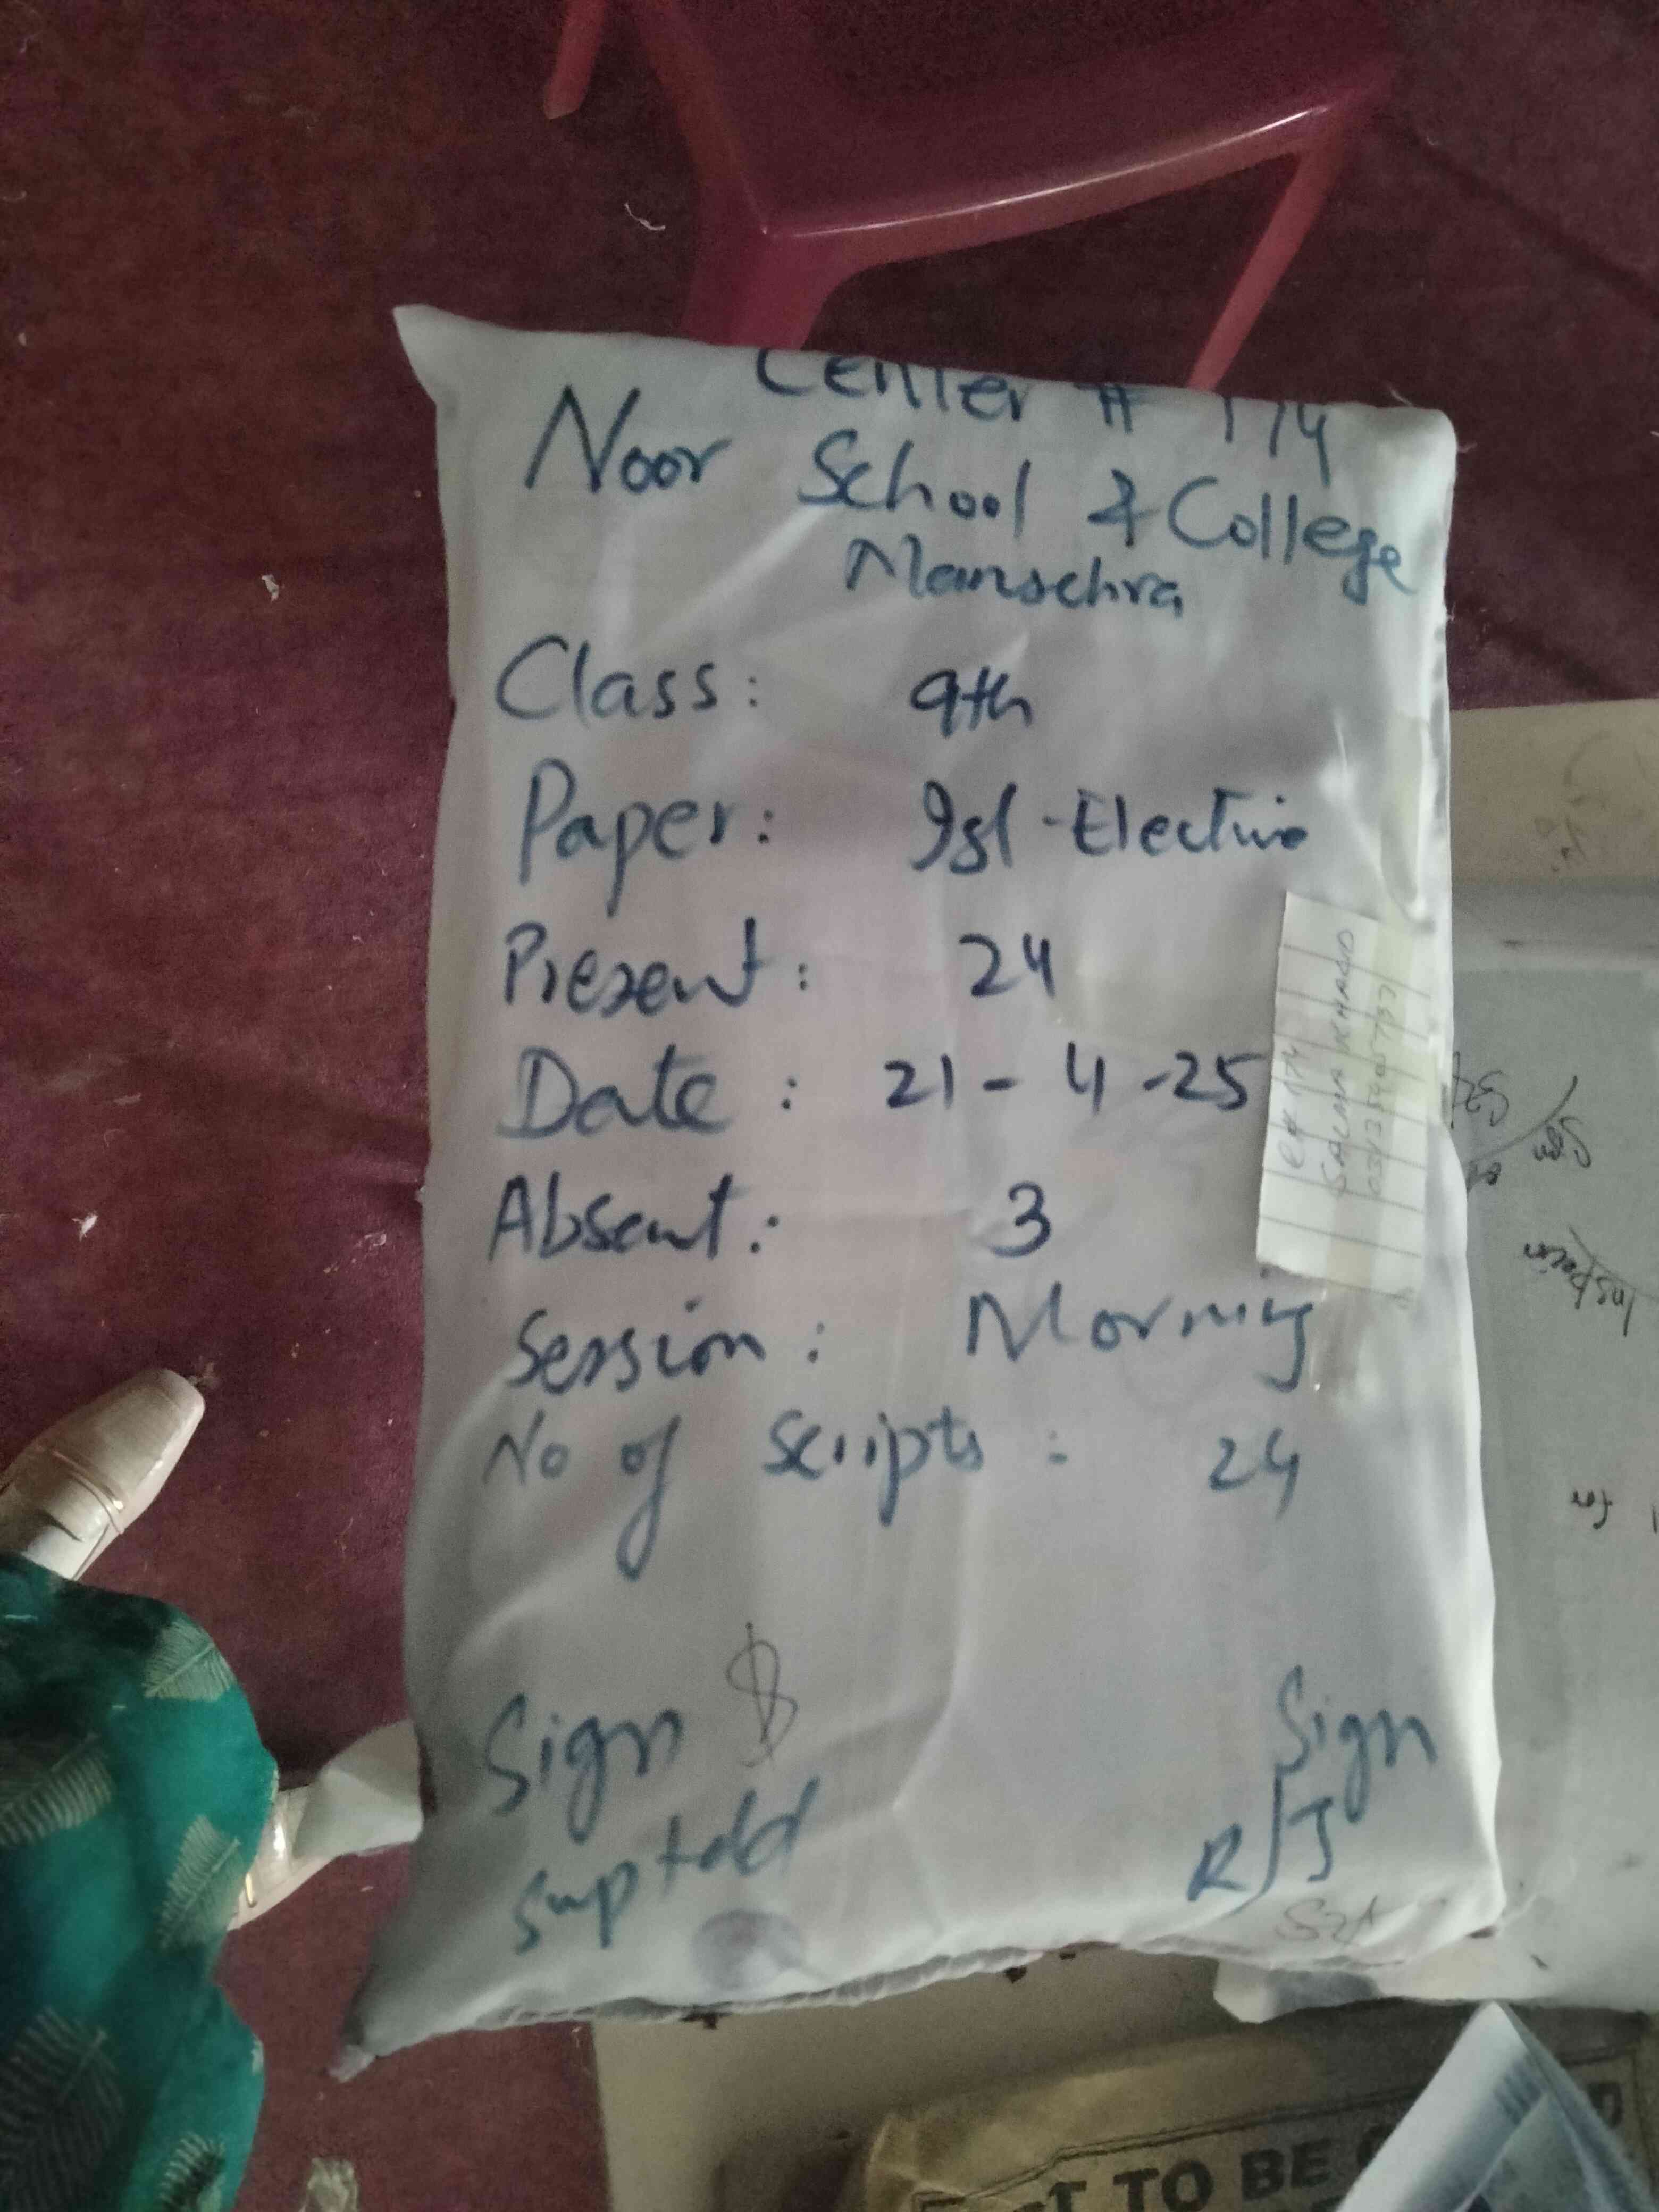 Center # 174
Noor School & College
Mansehra
Class: 9th
Paper: Isl-Elective
Present: 24
Date: 21-4-25
Absent: 3
Session: Morning
No of scripts: 24
Sign
Suptdd
Sign
R/I
Sign
Inspector
for
TO BE